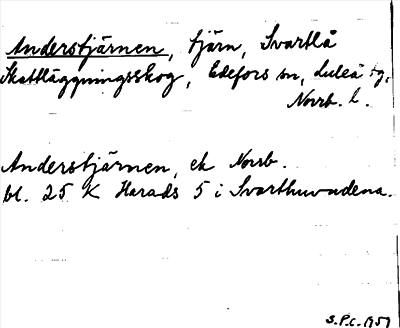 Anderstjärnen, tjärn, Svartlå
Skattläggningsskog, Edefors sn, Luleå tg,
Norrb. l.
Anderstjärnen, ek Norrb.
bl. 25 K Harads 5 i Svarthuvudena.
S.P.C. 1951